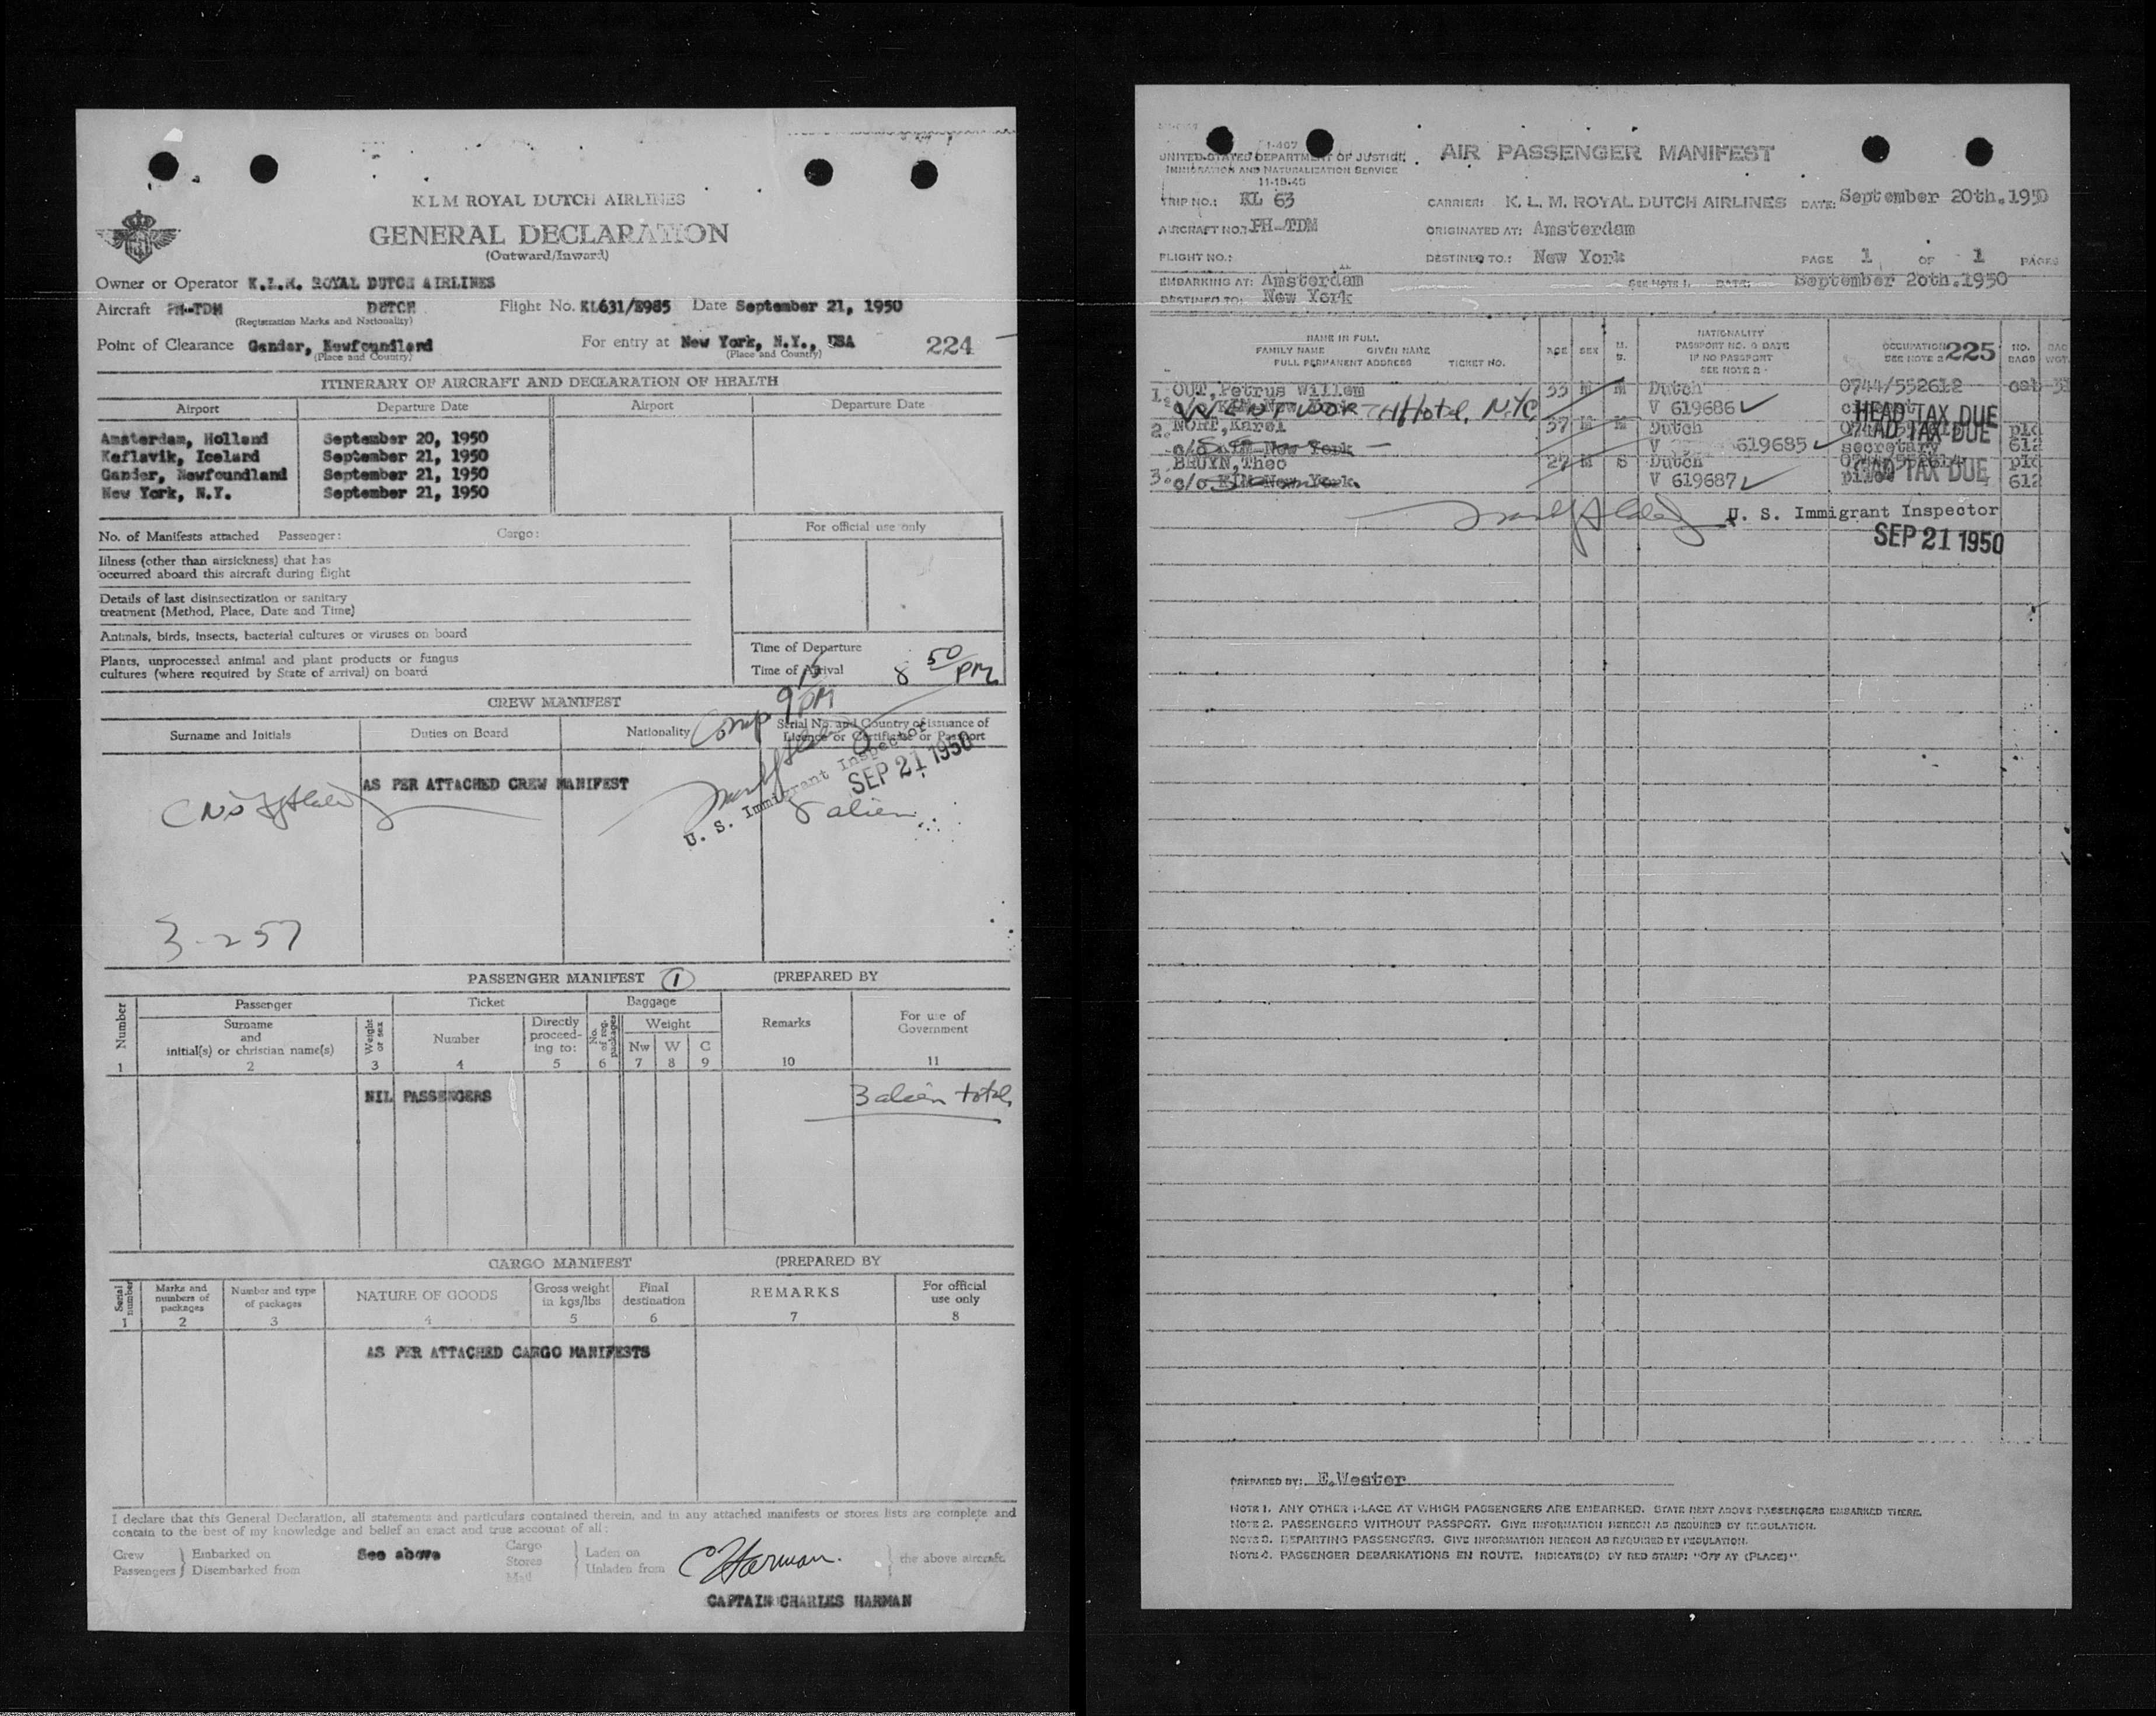 K L M ROYAL DUTCH AIRLINES
GENERAL DECLARATION
(Outward/Inward)
Owner or Operator K.L.M. ROYAL DUTCH AIRLINES
Aircraft PH-TDM DUTCH Flight No. KL631/E985 Date September 21, 1950
(Registration Marks and Nationality)
Point of Clearance Gander, Newfoundland For entry at New York, N.Y., USA 224
(Place and Country) (Place and Country)
ITINERARY OF AIRCRAFT AND DECLARATION OF HEALTH
Airport Departure Date Airport Departure Date
Amsterdam, Holland September 20, 1950
Keflavik, Iceland September 21, 1950
Gander, Newfoundland September 21, 1950
New York, N.Y. September 21, 1950
No. of Manifests attached Passenger: Cargo: For official use only
Illness (other than airsickness) that has
occurred aboard this aircraft during flight
Details of last disinsectization or sanitary
treatment (Method, Place, Date and Time)
Animals, birds, insects, bacterial cultures or viruses on board
Plants, unprocessed animal and plant products or fungus
cultures (where required by State of arrival) on board
Time of Departure
Time of Arrival 8 50 PM
CREW MANIFEST
Comp 9 15 PM
Surname and Initials Duties on Board Nationality Serial No. and Country of issuance of
Licence or Certificate or Passport
AS PER ATTACHED CREW MANIFEST
U. S. Immigrant Inspector
SEP 21 1950
alien
3-257
PASSENGER MANIFEST 1 (PREPARED BY
Number Passenger Ticket Baggage Remarks For use of
Government
Surname
and
initial(s) or christian name(s) Weight or sex Number Directly
proceed-
ing to: No. of reg. packages Weight
Nw W C
1 2 3 4 5 6 7 8 9 10 11
NIL PASSENGERS 3 alien total
CARGO MANIFEST (PREPARED BY
Serial number Marks and
numbers of
packages Number and type
of packages NATURE OF GOODS Gross weight
in kgs/lbs Final
destination REMARKS For official
use only
1 2 3 4 5 6 7 8
AS PER ATTACHED CARGO MANIFESTS
I declare that this General Declaration, all statements and particulars contained therein, and in any attached manifests or stores lists are complete and
contain to the best of my knowledge and belief an exact and true account of all:
Crew Embarked on See above Cargo Laden on
Passengers Disembarked from Stores Unladen from CHarman. the above aircraft.
Mail
CAPTAIN CHARLES HARMAN
I-467
UNITED STATES DEPARTMENT OF JUSTICE
IMMIGRATION AND NATURALIZATION SERVICE
11-15-45
AIR PASSENGER MANIFEST
TRIP NO.: KL 63 CARRIER: K. L. M. ROYAL DUTCH AIRLINES DATE: September 20th.1950
AIRCRAFT NO.: PH-TDM ORIGINATED AT: Amsterdam
FLIGHT NO.: DESTINED TO.: New York PAGE 1 OF 1 PAGES
EMBARKING AT: Amsterdam SEE NOTE 1. DATE: September 20th.1950
DESTINED TO: New York
NAME IN FULL
FAMILY NAME GIVEN NAME
FULL PERMANENT ADDRESS TICKET NO.
AGE SEX M. S.
NATIONALITY
PASSPORT NO. & DATE
IF NO PASSPORT
SEE NOTE 2
OCCUPATION
SEE NOTE 2 225 NO.
BAGG
1. OUT, Petrus Willem 33 M M Dutch 0744/552612
WENTWORTH Hotel, NYC V 619686 HEAD TAX DUE
2. NORT, Karel 37 M M Dutch HEAD TAX DUE
c/o KLM New York V 619685 secretary 612
BRUYN, Theo 27 M S Dutch
3. c/o KLM New York. V 619687 HEAD TAX DUE 612
U. S. Immigrant Inspector
SEP 21 1950
PREPARED BY: E.Wester
NOTE 1. ANY OTHER PLACE AT WHICH PASSENGERS ARE EMBARKED. STATE NEXT ABOVE PASSENGERS EMBARKED THERE.
NOTE 2. PASSENGERS WITHOUT PASSPORT. GIVE INFORMATION HEREON AS REQUIRED BY REGULATION.
NOTE 3. DEPARTING PASSENGERS. GIVE INFORMATION HEREON AS REQUIRED BY REGULATION.
NOTE 4. PASSENGER DEBARKATIONS EN ROUTE. INDICATE(D) BY RED STAMP: "OFF AT (PLACE)".